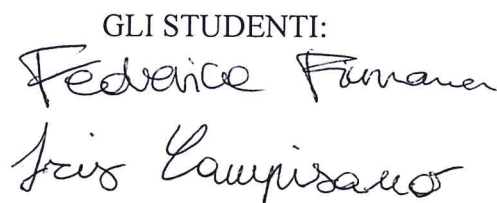 GLI STUDENTI:
Federica
Iris Campisano